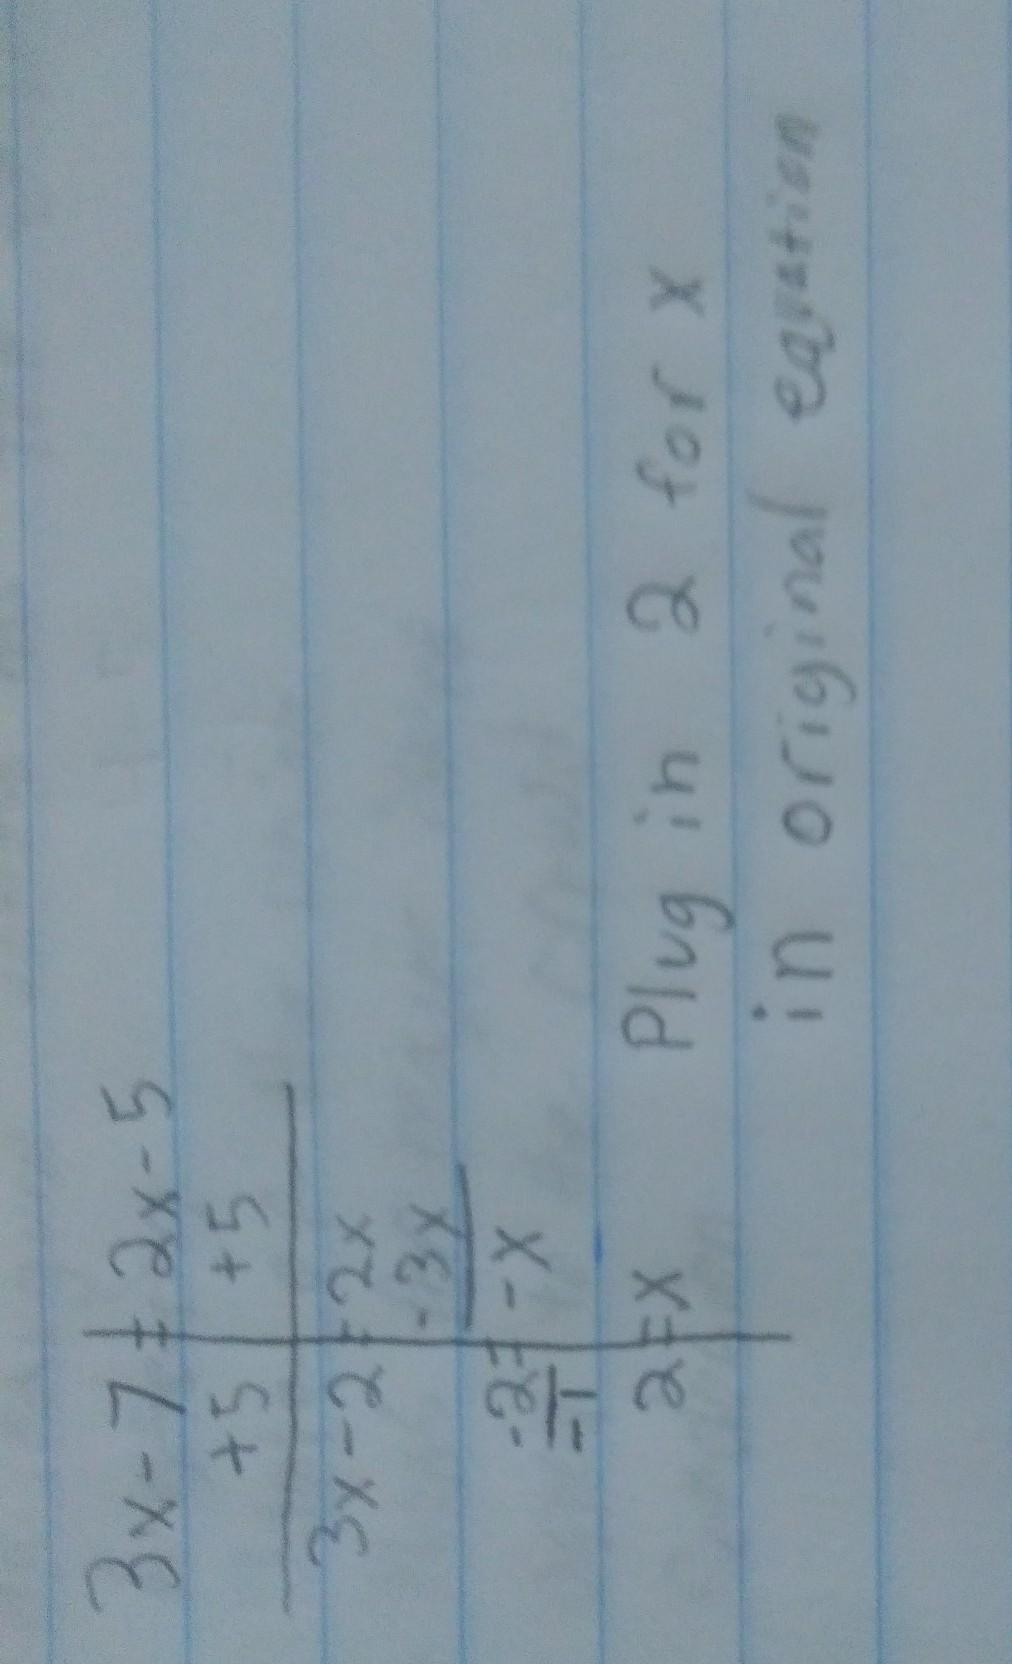 3x - 7 = 2x - 5
+5 +5
3x - 2 = 2x
-3x
-2 = -x
-1
2 = x Plug in 2 for x
in original equation